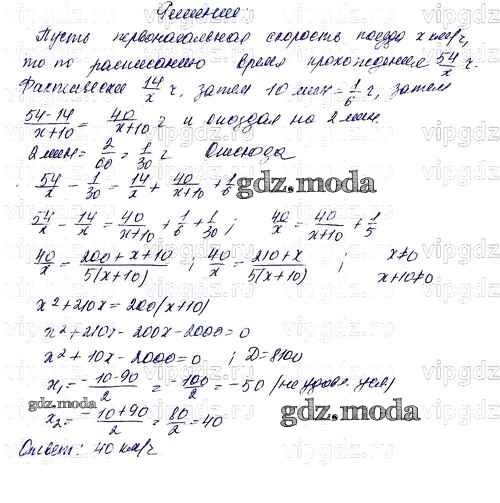 Решение
Пусть первоначальная скорость поезда x км/ч,
то по расписанию время прохождения 54/x ч.
Фактически 14/x ч, затем 10 мин = 1/6 ч, затем
54-14/x+10 = 40/x+10 ч и опоздал на 2 мин
2 мин = 2/60 = 1/30 ч Отсюда
54/x - 1/30 = 14/x + 40/x+10 + 1/6
gdz.moda
54/x - 14/x = 40/x+10 + 1/6 + 1/30 ; 40/x = 40/x+10 + 1/5
40/x = 200+x+10/5(x+10) ; 40/x = 210+x/5(x+10) ; x≠0
x+10≠0
x²+210x=200(x+10)
x²+210x-200x-2000=0
x²+10x-2000=0 ; D=8100
x₁= -10-90/2 = -100/2 = -50 (не удовл. усл)
gdz.moda
x₂= -10+90/2 = 80/2 = 40
gdz.moda
Ответ: 40 км/ч
vipgdz.com